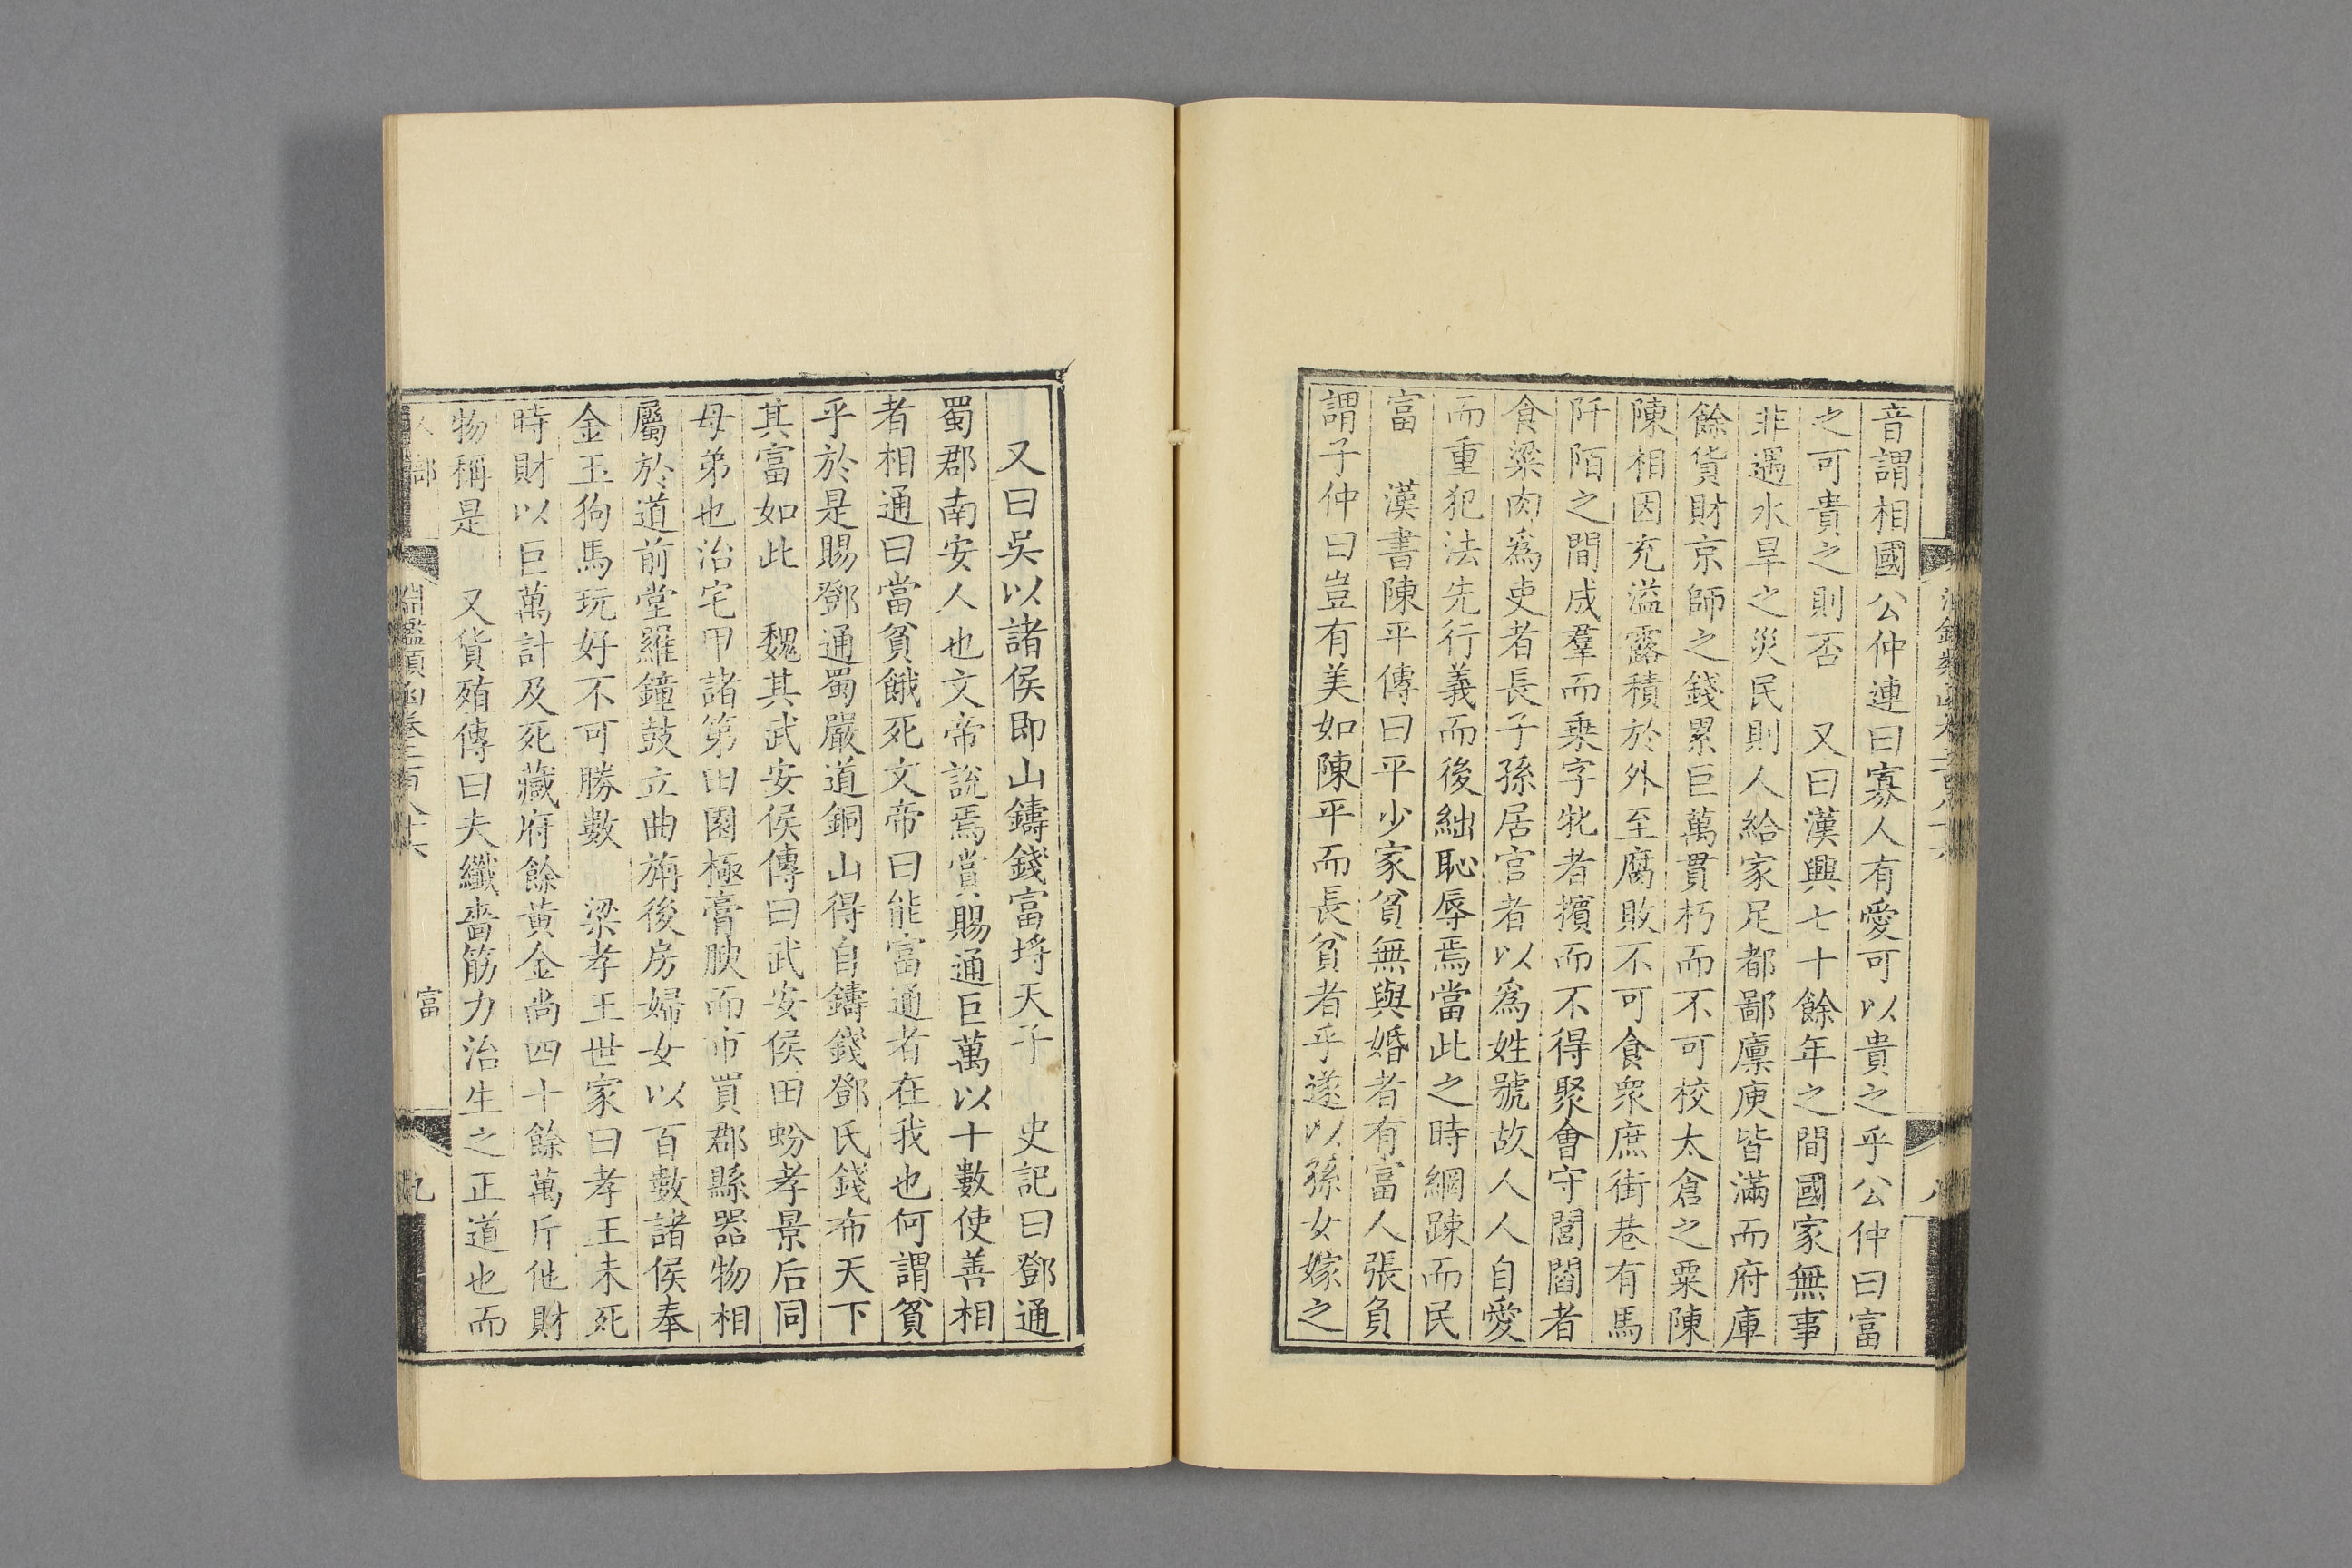 音謂相國公仲連曰寡人有愛可以貴之乎公仲曰富
之可貴之則否　又曰漢興七十餘年之間國家無事
非遇水旱之災民則人給家足都鄙廩庾皆滿而府庫
餘貨財京師之錢累巨萬貫朽而不可校太倉之粟陳
陳相因充溢露積於外至腐敗不可食衆庶街巷有馬
阡陌之間成羣而乗字牝者擯而不得聚會守閭閻者
食粱肉爲吏者長子孫居官者以爲姓號故人人自愛
而重犯法先行義而後絀恥辱焉當此之時網踈而民
富　漢書陳平傳曰平少家貧無與婚者有富人張負
謂子仲曰豈有美如陳平而長貧者乎遂以孫女嫁之
又曰吳以諸侯即山鑄錢富埓天子　史記曰鄧通
蜀郡南安人也文帝說焉賞賜通巨萬以十數使善相
者相通曰當貧餓死文帝曰能富通者在我也何謂貧
乎於是賜鄧通蜀嚴道銅山得自鑄錢鄧氏錢布天下
其富如此　魏其武安侯傳曰武安侯田蚡孝景后同
母弟也治宅甲諸第田園極膏腴而市買郡縣器物相
屬於道前堂羅鐘鼓立曲旃後房婦女以百數諸侯奉
金玉狗馬玩好不可勝數　梁孝王世家曰孝王未死
時財以巨萬計及死藏府餘黃金尚四十餘萬斤他財
物稱是　又貨殖傳曰夫纖嗇筋力治生之正道也而
人部　淵鑑類函卷二百八十六　富　九